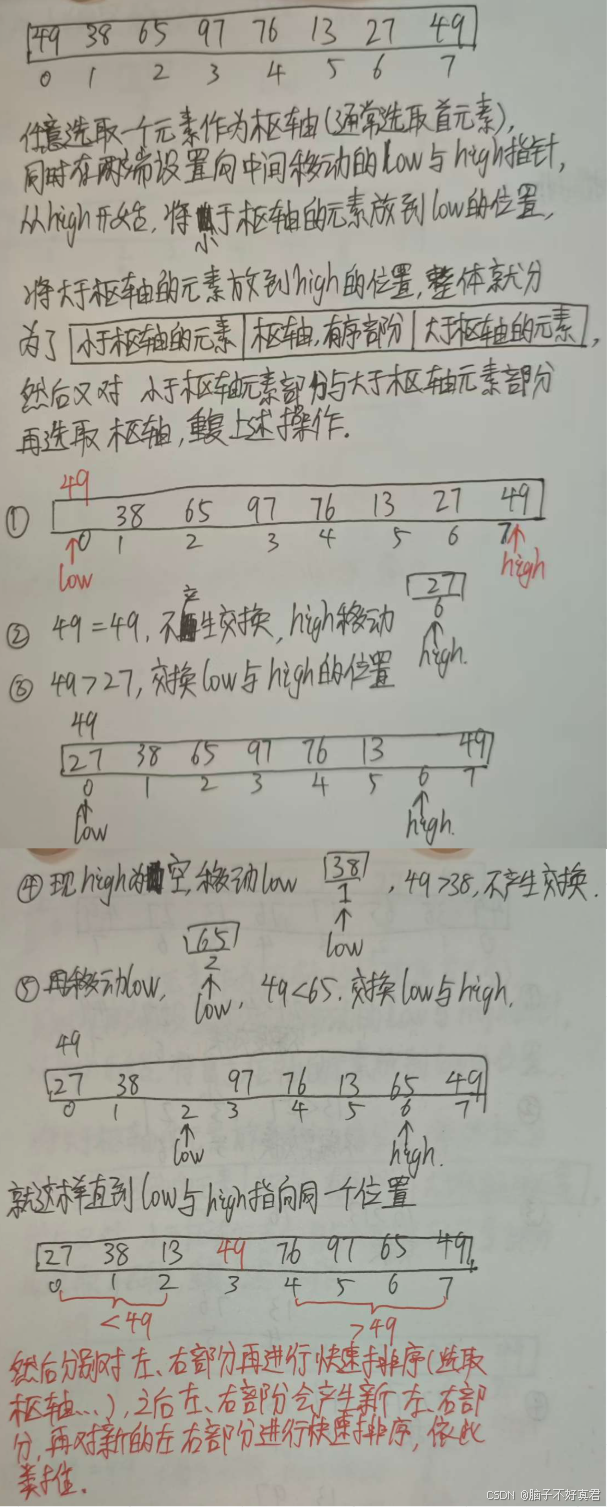 49 38 65 97 76 13 27 49
0 1 2 3 4 5 6 7
任意选取一个元素作为枢轴(通常选取首元素),
同时在两端设置向中间移动的low与high指针,
从high开始,将小于枢轴的元素放到low的位置,
将大于枢轴的元素放到high的位置,整体就分
为了 小于枢轴的元素 枢轴,有序部分 大于枢轴的元素 ,
然后又对 小于枢轴元素部分与大于枢轴元素部分
再选取枢轴,重复上述操作.
49
① 38 65 97 76 13 27 49
0 1 2 3 4 5 6 7
low high
27
6
② 49=49,不产生交换,high移动
high.
③ 49>27,交换low与high的位置
49
27 38 65 97 76 13 49
0 1 2 3 4 5 6 7
low high.
④ 现high为空,移动low 38 ,49>38,不产生交换.
1
low
65
2
⑤ 再移动low, low, 49<65.交换low与high,
49
27 38 97 76 13 65 49
0 1 2 3 4 5 6 7
low high.
就这样直到low与high指向同一个位置
27 38 13 49 76 97 65 49
0 1 2 3 4 5 6 7
<49 >49
然后分别对左、右部分再进行快速排序(选取
枢轴...),之后左、右部分会产生新左、右部
分,再对新的左右部分进行快速排序,依此
类推.
CSDN @脑子不好真君